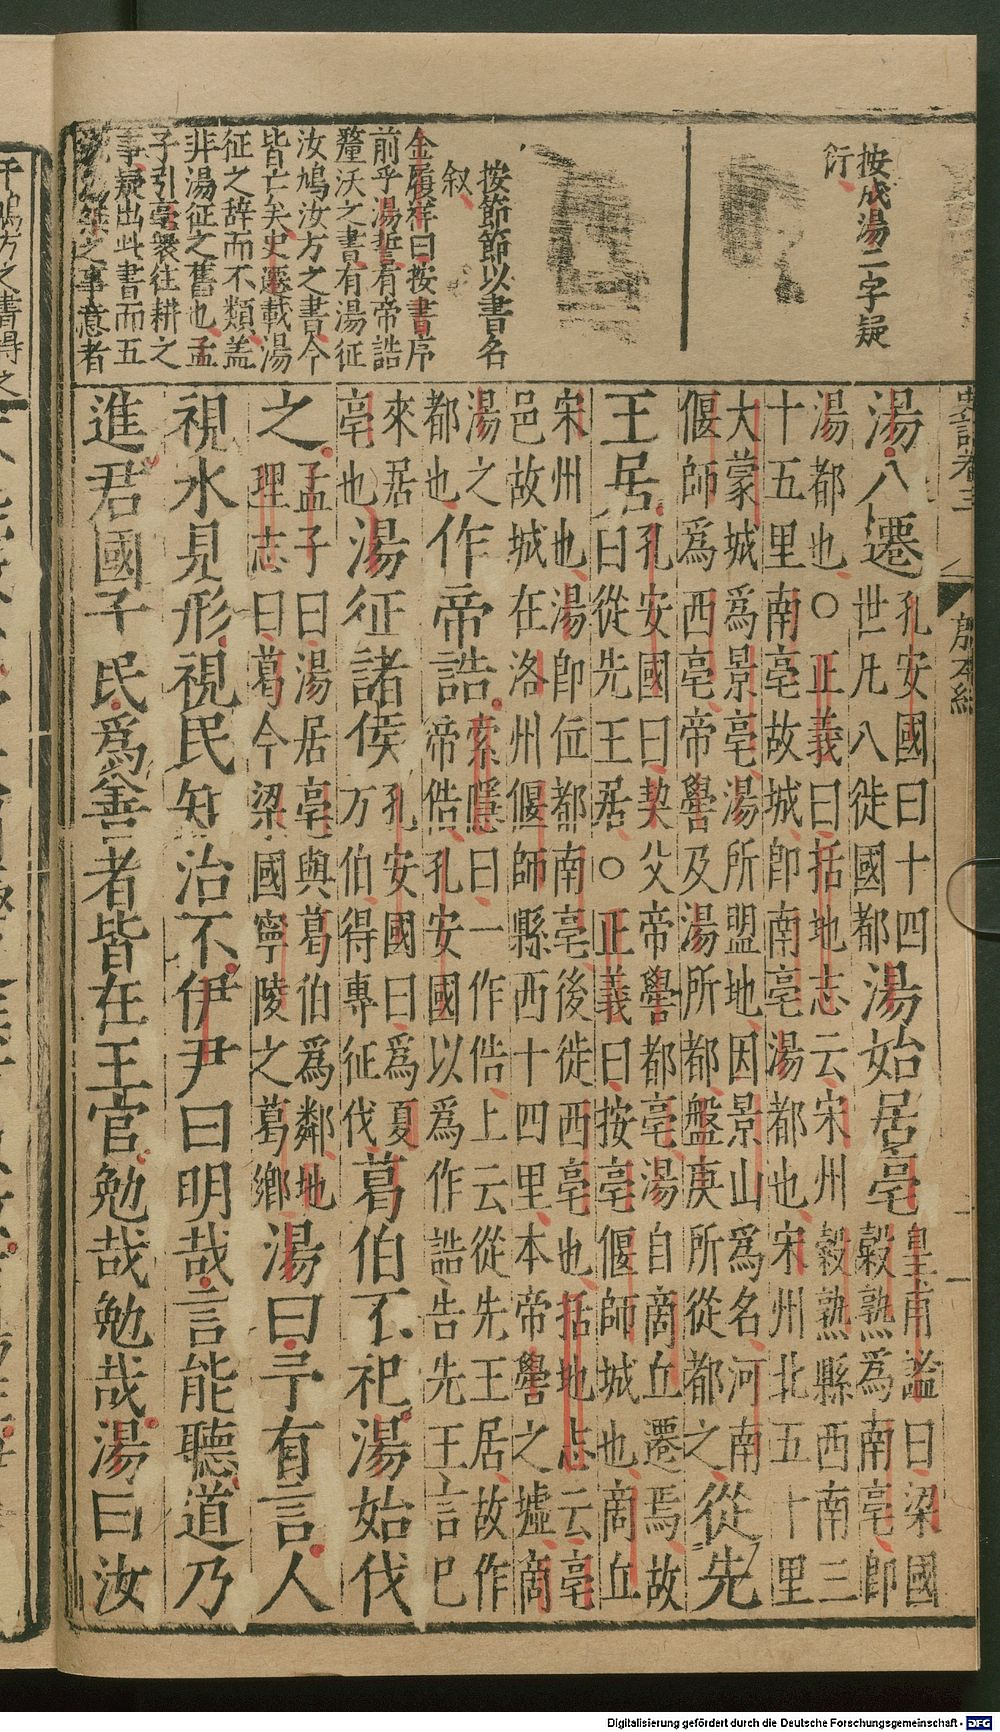 按成湯二字疑
衍
按節節以書名
叙
金履祥曰按書序
前乎湯誓有帝誥
釐沃之書有湯征
汝鳩汝方之書今
皆亡矣史遷載湯
征之辭而不類蓋
非湯征之舊也孟
子引亳衆往耕之
事疑出此書而五
桀之事意者
史記卷三 殷本紀
湯八遷孔安國曰十四世凡八徙國都湯始居亳皇甫謐曰梁國榖熟爲南亳即
湯都也○正義曰括地志云宋州榖熟縣西南三
十五里南亳故城即南亳湯都也宋州北五十里
大蒙城爲景亳湯所盟地因景山爲名河南
偃師爲西亳帝嚳及湯所都盤庚所從都之從先
王居孔安國曰契父帝嚳都亳湯自商丘遷焉故
曰從先王居○正義曰按亳偃師城也商丘
宋州也湯即位都南亳後徙西亳也括地志云亳
邑故城在洛州偃師縣西十四里本帝嚳之墟商
湯之都也作帝誥索隱曰一作俈上云從先王居故作帝俈孔安國以爲作誥告先王言已
來居亳也湯征諸侯孔安國曰爲夏方伯得專征伐葛伯不祀湯始伐
之孟子曰湯居亳與葛伯爲鄰地理志曰葛今梁國寧陵之葛鄉湯曰予有言人
視水見形視民知治不伊尹曰明哉言能聽道乃
進君國子民爲善者皆在王官勉哉勉哉湯曰汝
Digitalisierung gefördert durch die Deutsche Forschungsgemeinschaft - DFG